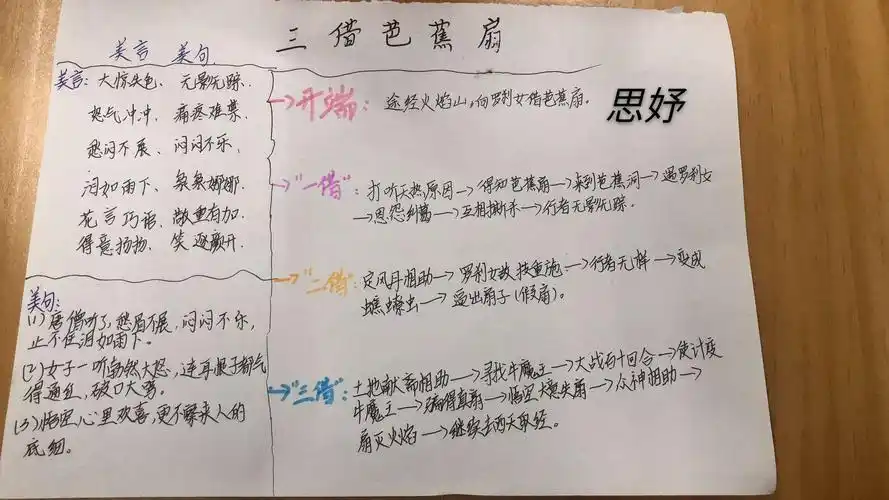 三借芭蕉扇
思妤
美言 美句
美言：大惊失色、无影无踪、
怒气冲冲、痛疼难禁、
愁闷不展、闷闷不乐、
泪如雨下、袅袅娜娜、
花言巧语、敬重有加、
得意扬扬、笑逐颜开、
美句：
(1)唐僧听了，愁眉不展，闷闷不乐，
止不住泪如雨下。
(2)女子一听勃然大怒，连耳根子都气
得通红，破口大骂。
(3)悟空心里欢喜，更不晓来人的
底细。
→开端：途经火焰山，向罗刹女借芭蕉扇。
→"一借"：打听天热原因→得知芭蕉扇→来到芭蕉洞→遇罗刹女
→恩怨纠葛→互相撕杀→行者无影无踪。
→"二借"：定风丹相助→罗刹女故技重施→行者无样→变成
蟭蟟虫→盗出扇子(假扇)。
→"三借"：土地献斋相助→寻找牛魔王→大战百十回合→使计变
牛魔王→骗得真扇→悟空大意失扇→众神相助→
扇灭火焰→继续去西天取经。